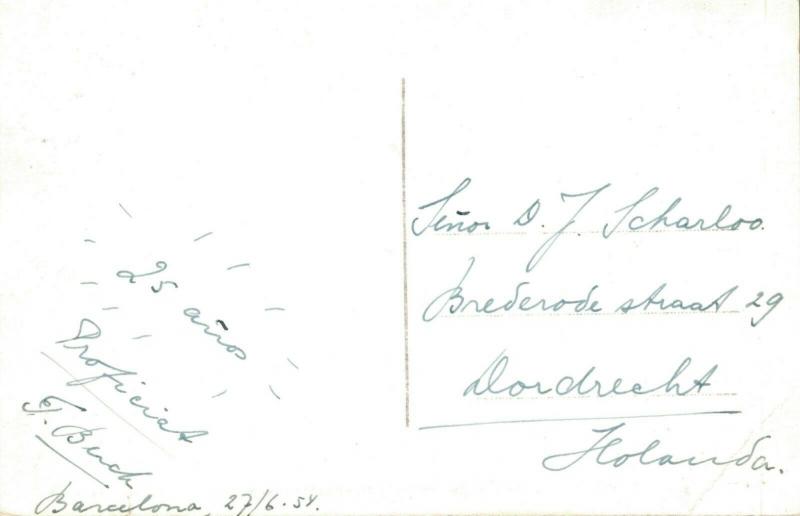 25 años
Proficiat
Barcelona, 27/6.54.
Señor D. J. Scharloo.
Brederode straat 29
Dordrecht
Holanda.